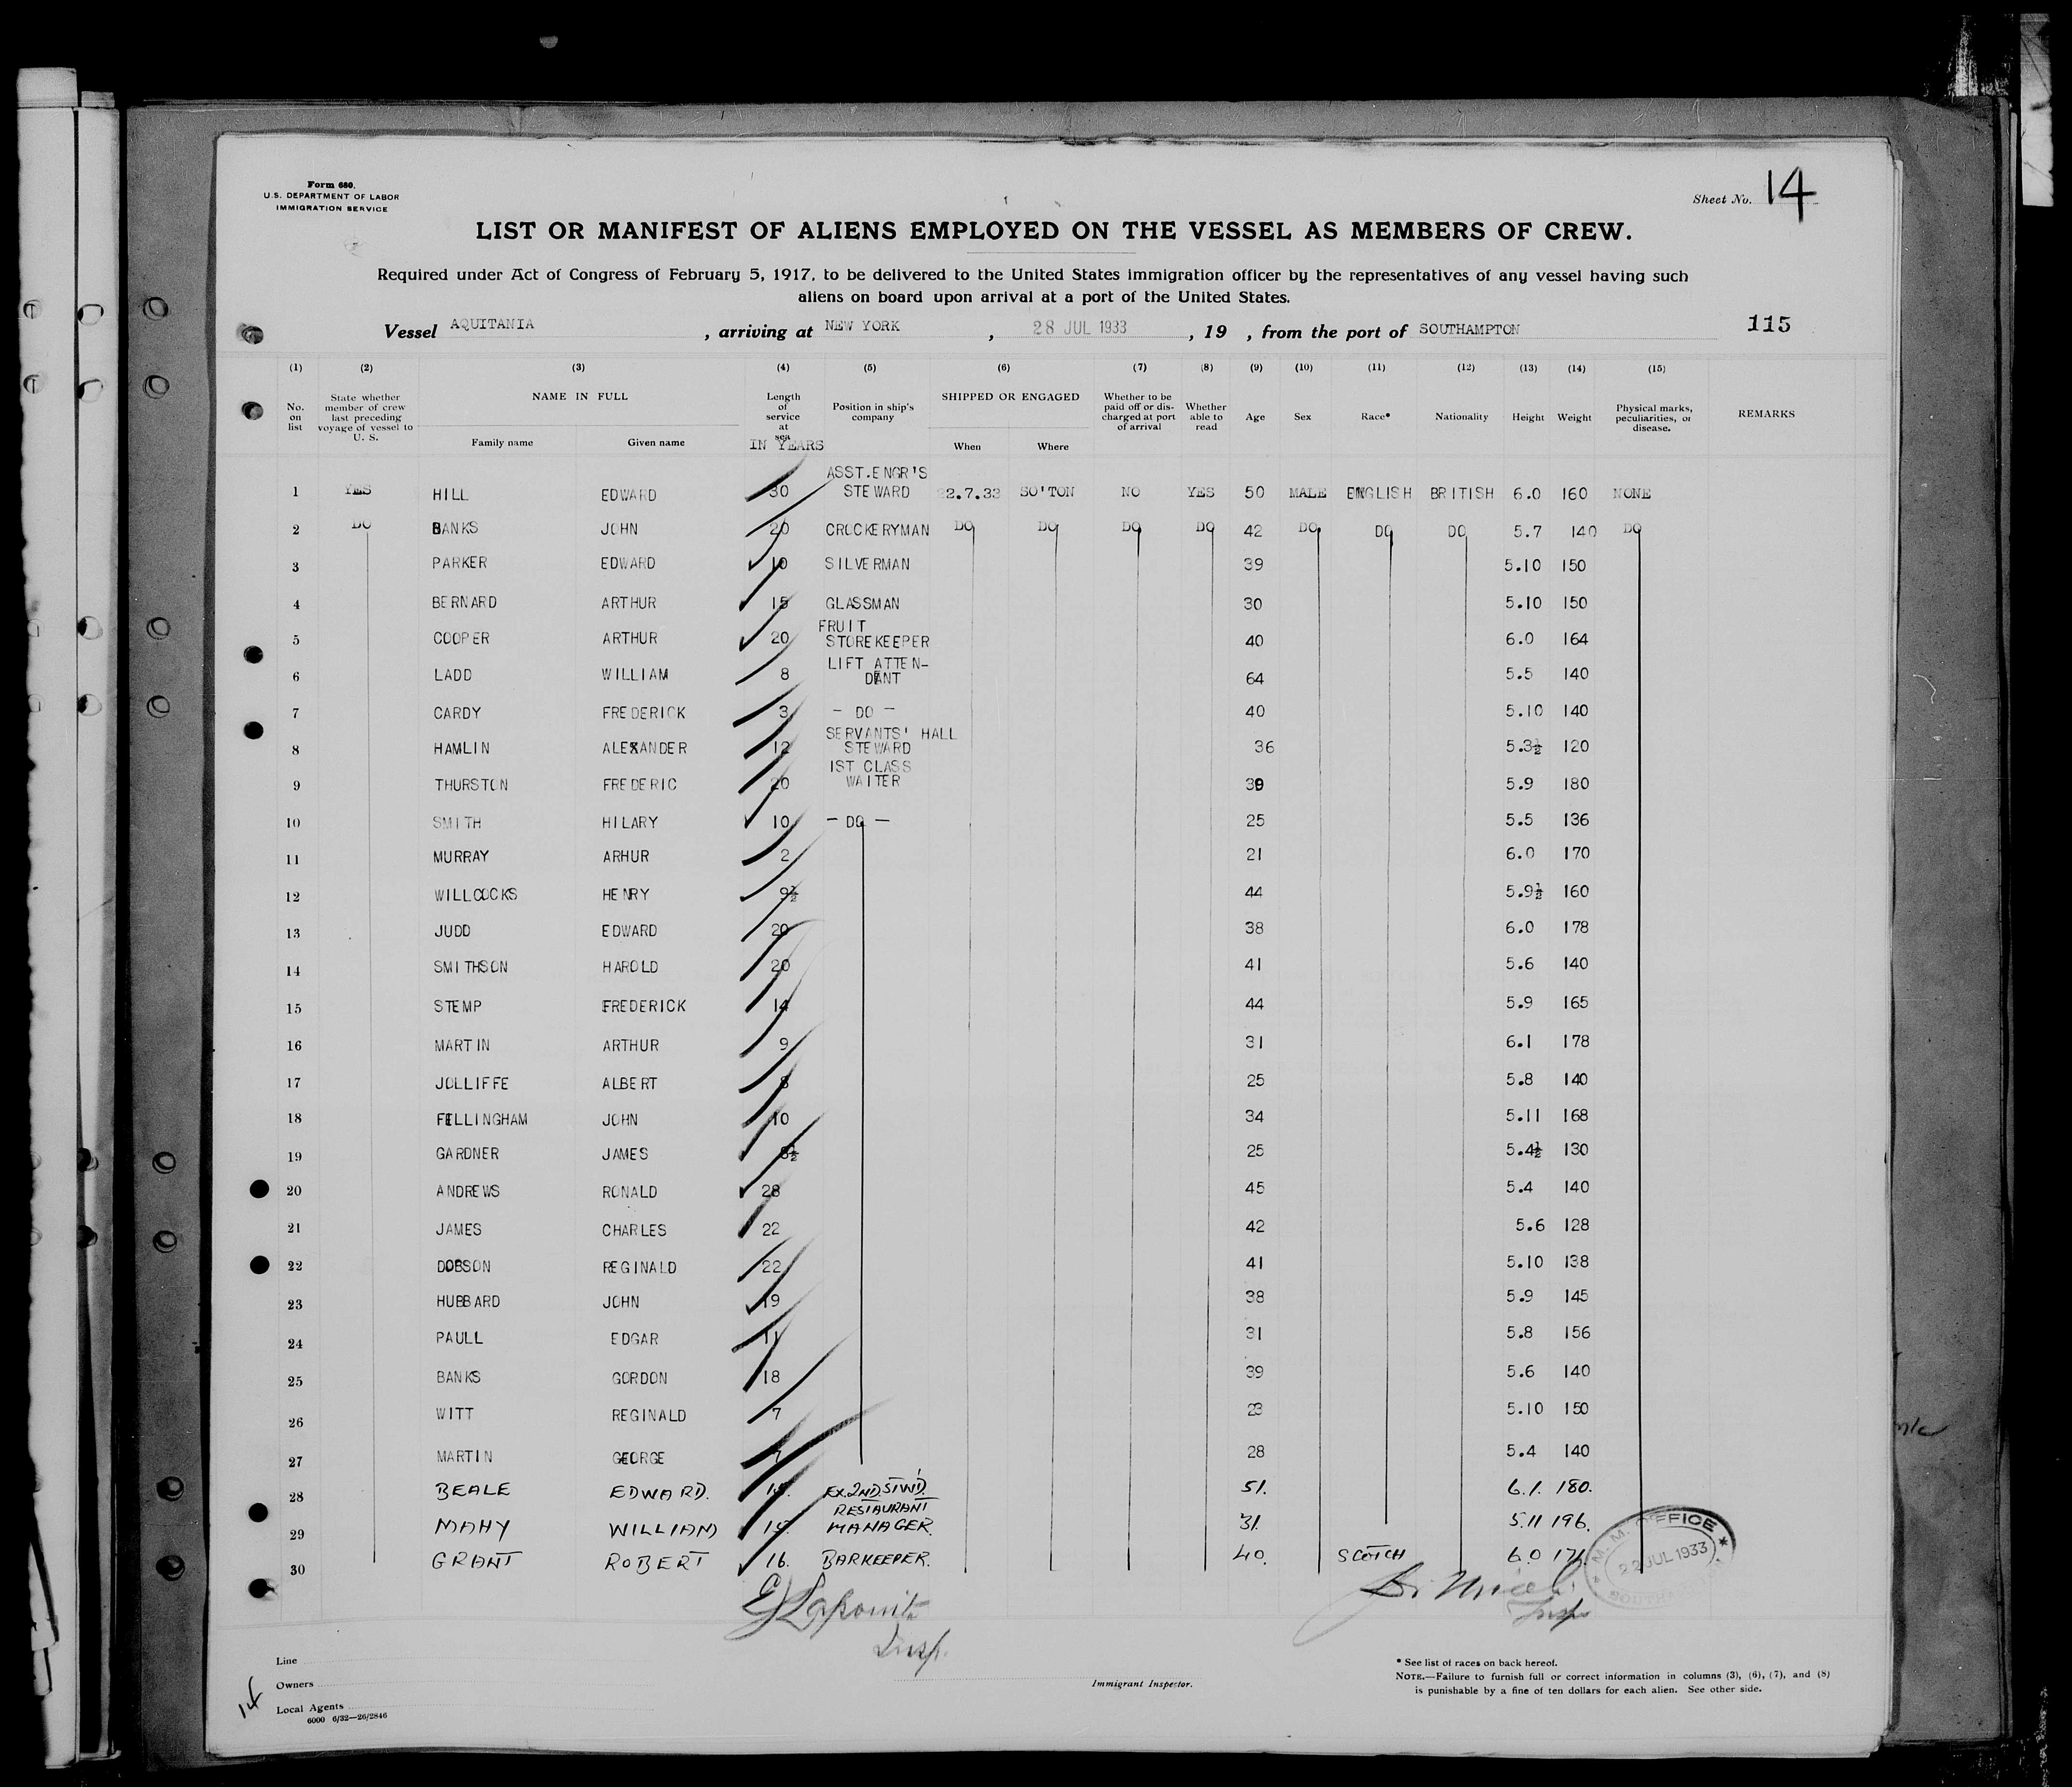 Form 680.
U.S. DEPARTMENT OF LABOR
IMMIGRATION SERVICE
Sheet No. 14
LIST OR MANIFEST OF ALIENS EMPLOYED ON THE VESSEL AS MEMBERS OF CREW.
Required under Act of Congress of February 5, 1917, to be delivered to the United States immigration officer by the representatives of any vessel having such
aliens on board upon arrival at a port of the United States.
Vessel AQUITANIA, arriving at NEW YORK, 28 JUL 1933, 19 , from the port of SOUTHAMPTON 115
(1) (2) (3) (4) (5) (6) (7) (8) (9) (10) (11) (12) (13) (14) (15)
No. on list State whether member of crew last preceding voyage of vessel to U. S. NAME IN FULL Family name Given name Length of service at sea IN YEARS Position in ship's company SHIPPED OR ENGAGED When Where Whether to be paid off or discharged at port of arrival Whether able to read Age Sex Race* Nationality Height Weight Physical marks, peculiarities, or disease. REMARKS
1 YES HILL EDWARD 30 ASST.ENGR'S STEWARD 22.7.33 SO'TON NO YES 50 MALE ENGLISH BRITISH 6.0 160 NONE
2 DO BANKS JOHN 20 CROCKERYMAN DO DO DO DO 42 DO DO DO 5.7 140 DO
3 PARKER EDWARD 10 SILVERMAN 39 5.10 150
4 BERNARD ARTHUR 15 GLASSMAN 30 5.10 150
5 COOPER ARTHUR 20 FRUIT STOREKEEPER 40 6.0 164
6 LADD WILLIAM 8 LIFT ATTEN-DANT 64 5.5 140
7 CARDY FREDERICK 3 - DO - 40 5.10 140
8 HAMLIN ALEXANDER 12 SERVANTS' HALL STEWARD 36 5.3½ 120
9 THURSTON FREDERIC 20 1ST CLASS WAITER 39 5.9 180
10 SMITH HILARY 10 - DO - 25 5.5 136
11 MURRAY ARHUR 2 21 6.0 170
12 WILLCOCKS HENRY 9½ 44 5.9½ 160
13 JUDD EDWARD 20 38 6.0 178
14 SMITHSON HAROLD 20 41 5.6 140
15 STEMP FREDERICK 14 44 5.9 165
16 MARTIN ARTHUR 9 31 6.1 178
17 JOLLIFFE ALBERT 8 25 5.8 140
18 FELLINGHAM JOHN 10 34 5.11 168
19 GARDNER JAMES 8½ 25 5.4½ 130
20 ANDREWS RONALD 28 45 5.4 140
21 JAMES CHARLES 22 42 5.6 128
22 DOBSON REGINALD 22 41 5.10 138
23 HUBBARD JOHN 19 38 5.9 145
24 PAULL EDGAR 11 31 5.8 156
25 BANKS GORDON 18 39 5.6 140
26 WITT REGINALD 7 23 5.10 150
27 MARTIN GEORGE 7 28 5.4 140
28 BEALE EDWARD. EX.2ND.STW'D. 51. 6.1. 180.
29 MAHY WILLIAM RESTAURANT MANAGER. 31. 5.11 196.
30 GRANT ROBERT 16. BARKEEPER. 40. SCOTCH 6.0 171.
M. M. OFFICE
22 JUL 1933
Insp.
Insp
Line
Owners
Local Agents
6000 6/32—26/2846
14
Immigrant Inspector.
* See list of races on back hereof.
NOTE.—Failure to furnish full or correct information in columns (3), (6), (7), and (8)
is punishable by a fine of ten dollars for each alien. See other side.